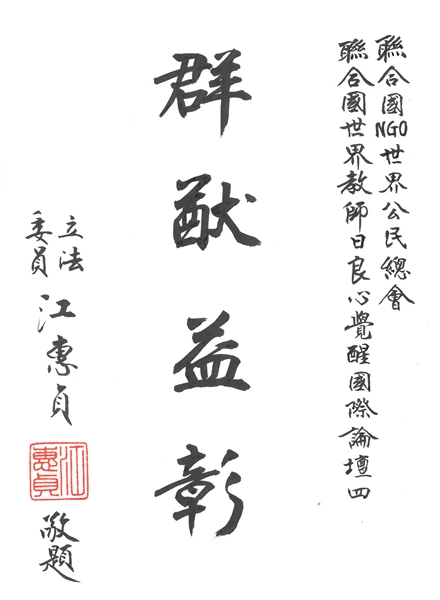 聯合國NGO世界公民總會
聯合國世界教師日良心覺醒國際論壇四
群猷益彰
立法
委員
江惠貞
江惠貞
敬題